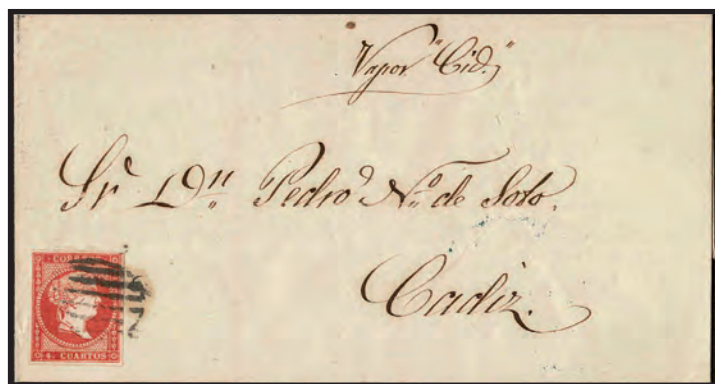 Vapor "Cid."
Sr. Dn. Pedro N.o de Soto.
Cadiz.
CORREOS
4. CUARTOS